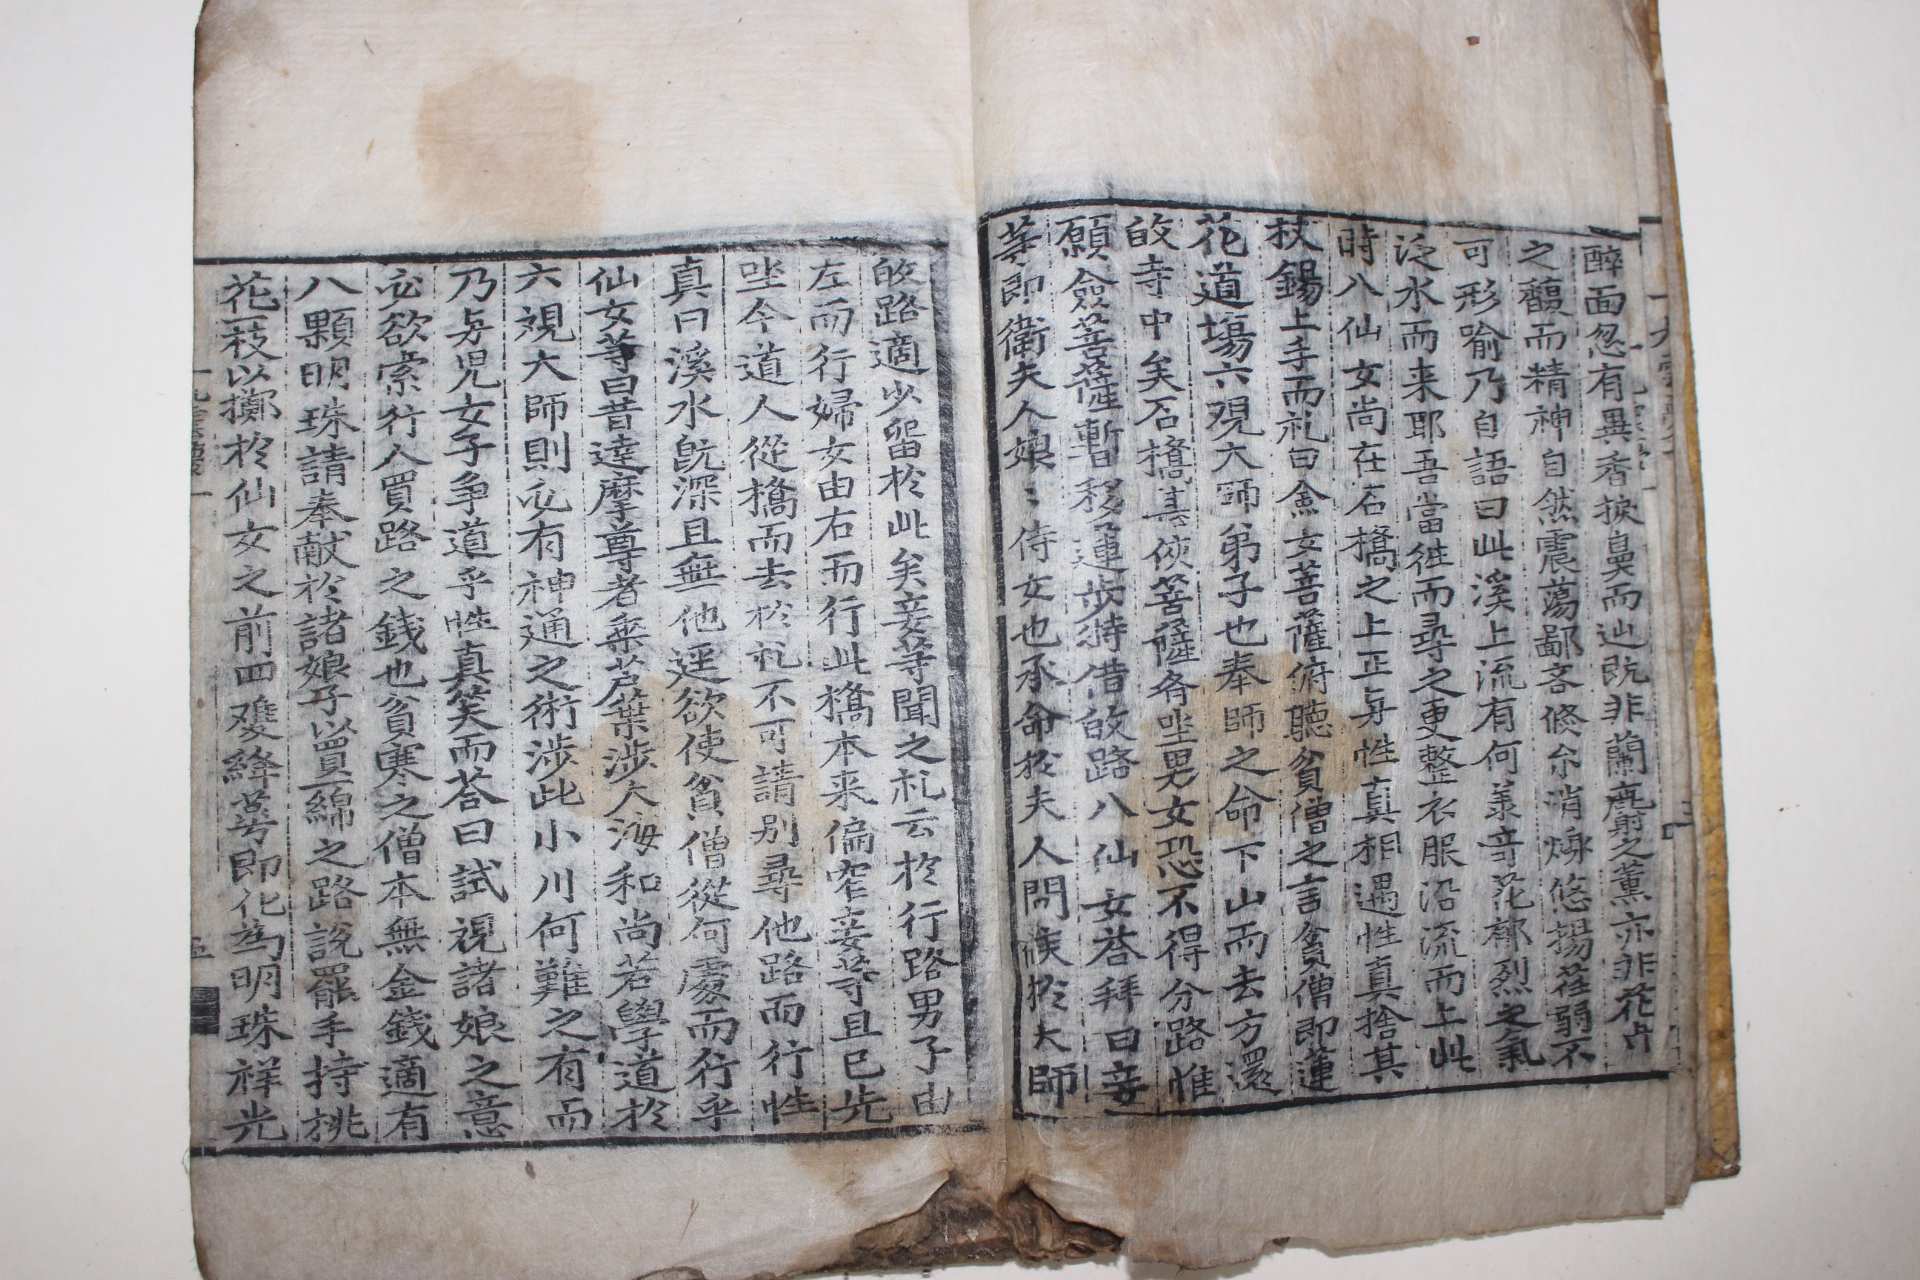 醉面忽有異香捩鼻而过既非蘭麝之薰亦非花卉
之馥而精神自然震蕩鄙吝倐尒消爍悠揚荏弱不
可形喻乃自語曰此溪上流有何羙奇花郁烈之氣
泛水而来耶吾當徃而尋之更整衣服沿流而上此
時八仙女尚在石橋之上正与性真相遇性真捨其
杖錫上手而礼曰僉女菩薩俯聽貧僧之言貧僧即蓮
花道塲六观大師弟子也奉師之命下山而去方還
故寺中矣石橋甚俠菩薩斉坐男女恐不得分路惟
願僉菩薩暫移蓮步特借故路八仙女荅拜曰妾
等即衛夫人娘〻侍女也承命扵夫人問候扵大師
故路適少留扵此矣妾等聞之礼云扵行路男子由
左而行婦女由右而行此橋本来偏窄妾等且已先
坐今道人從橋而去扵礼不可請別尋他路而行性
真曰溪水旣深且無他逕欲使貧僧從何處而行乎
仙女等曰昔達摩尊者乘芦葉涉大海和尚若學道於
六观大師則必有神通之術涉此小川何難之有而
乃与児女子争道乎性真笑而荅曰試視諸娘之意
必欲索行人買路之錢也貧寒之僧本無金錢適有
八顆明珠請奉献扵諸娘子以買一綿之路說罷手持桃
花一枝以擲扵仙女之前四雙絳萼即化為明珠祥光